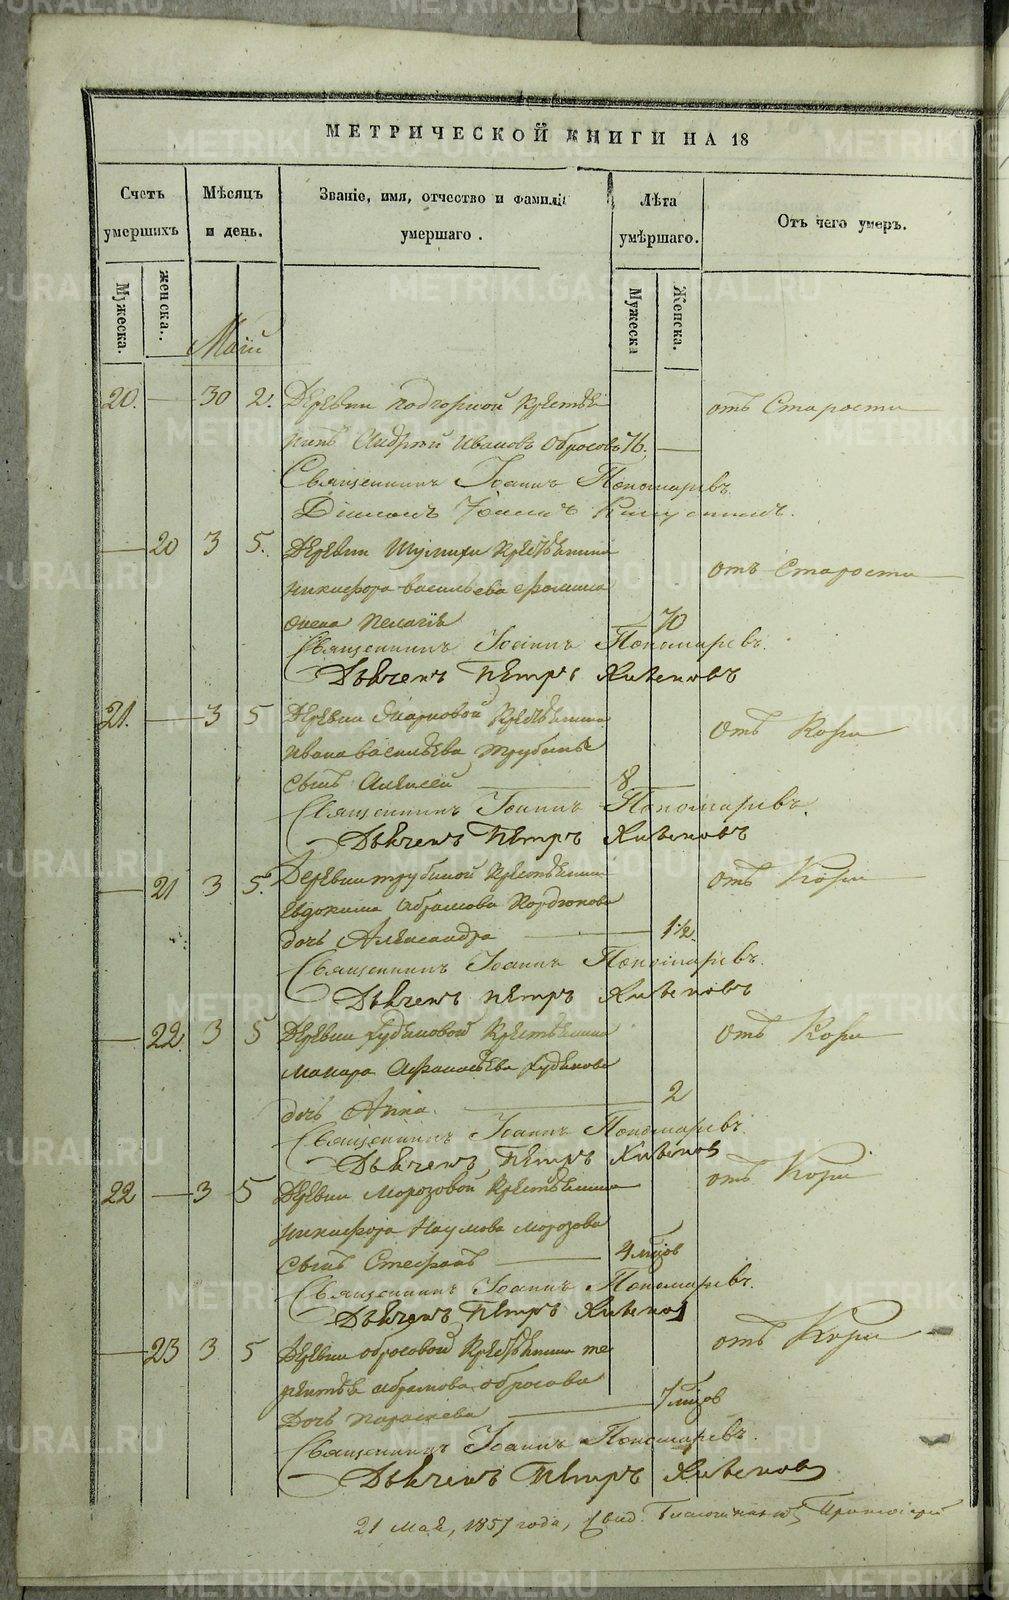 МЕТРИЧЕСКОЙ КНИГИ НА 18
Счетъ умершихъ
Мѣсяцъ и день.
Званіе, имя, отчество и фамилія умершаго.
Лѣта умѣршаго.
Отъ чего умеръ.
Мужеска.
женска.
Мужеска
Женска.
Маій
20. 30 2. Деревни Подгорной Крестья
отъ Старости
нинъ Андрей Ивановъ Обросовъ 76.
Священникъ Іоаннъ Пономаревъ.
Діаконъ
20 3 5. Деревни Крестьянина
отъ Старости
Никифора Васильева
жена Пелагія 70
Священникъ Іоаннъ Пономаревъ.
Дьячекъ Петръ
21. 3 5 Деревни Крестьянина
отъ Кори
Ивана Васильева Трубина
сынъ Алексей 8
Священникъ Іоаннъ Пономаревъ.
Дьячекъ Петръ
21 3 5. Деревни Трубиной Крестьянина
отъ Кори
Евдокима Абрамова Кордюкова
дочь Александра 1 1/2.
Священникъ Іоаннъ Пономаревъ.
Дьячекъ Петръ
22 3 5 Деревни Худяковой Крестьянина
отъ Кори
Макара Афанасьева Худякова
дочь Анна. 2
Священникъ Іоаннъ Пономаревъ.
Дьячекъ Петръ
22 3 5 Деревни Морозовой Крестьянина
отъ Кори
Никифора Наумова Морозова
сынъ Стефанъ 4 мѣсяцов
Священникъ Іоаннъ Пономаревъ.
Дьячекъ Петръ
23 3 5 Деревни Обросовой Крестьянина Те
отъ Кори
рентья Абрамова Обросова
Дочь Параскева 7 мѣсяцов
Священникъ Іоаннъ Пономаревъ.
Дьячекъ Петръ
21 Мая, 1857 года,
METRIKI.GASO-URAL.RU